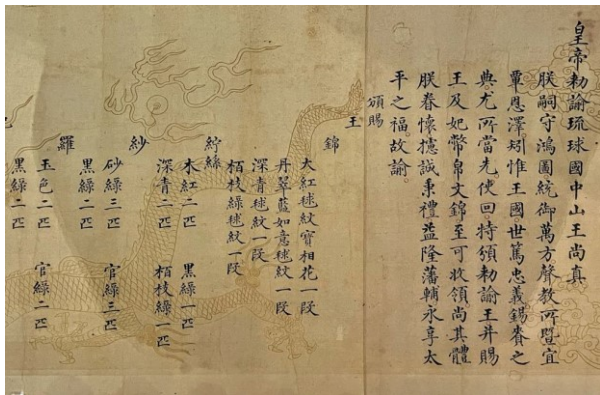 皇帝勑諭琉球國中山王尚真
朕嗣守鴻圖統御萬方聲教所曁宜
覃恩澤矧惟王國世篤忠義錫賚之
典尤所當先使回特頒勑諭王并賜
王及妃幣帛文錦至可收領尚其體
朕眷懷攄誠秉禮益隆藩輔永享太
平之福故諭
頒賜
王
錦
大紅毬紋寶相花一叚
丹翠藍如意毬紋一叚
深青毬紋一叚
栢枝綠毬紋一叚
紵絲
木紅二匹 黑綠一匹
深青二匹 栢枝綠一匹
紗
砂綠三匹 官綠三匹
黑綠二匹
羅
玉色二匹 官綠二匹
黑綠二匹